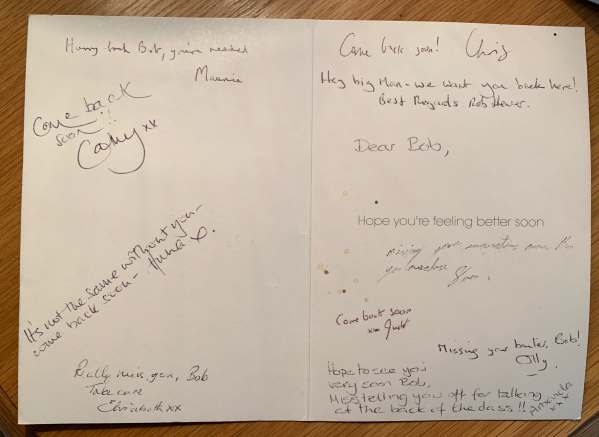 Hurry back Bob, you're needed
Come back
soon!!
Cathy xx
It's not the same without you -
come back soon -
Really miss you, Bob
Take care
Elizabeth xx
Come back soon! Chris
Hey big Man - we want you back here!
Best Regards Rob
Dear Bob,
Hope you're feeling better soon
missing your
Come back soon
Missing your banter, Bob!
Olly.
Hope to see you
very soon Bob.
Miss telling you off for talking
at the back of the class!!